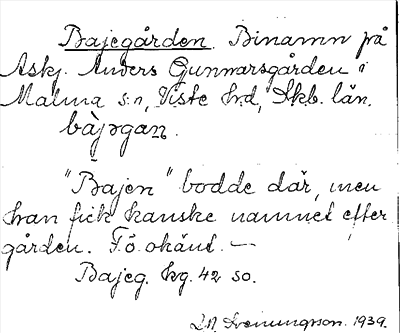 Bajegården. Binamn på
Askj. Anders Gunnarsgården i
Malma sn, Viste hrd, Skb. län.
bàjəgan.
"Bajen" bodde där, men
han fick kanske namnet efter
gården. Fö okänt. —
Bajeg. kg. 42 so.
Sveningsson. 1939.